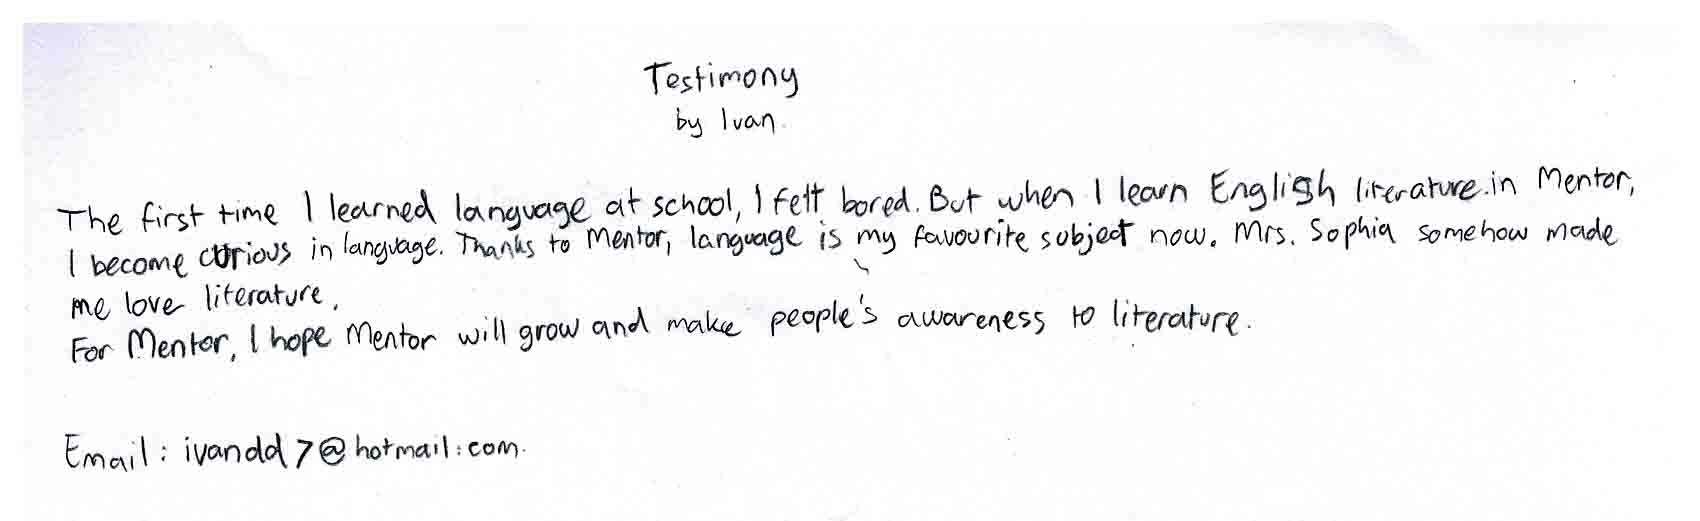 Testimony
by Ivan.
The first time I learned language at school, I felt bored. But when I learn English literature in Mentor,
I become curious in language. Thanks to Mentor, language is my favourite subject now. Mrs. Sophia somehow made
me love literature.
For Mentor, I hope Mentor will grow and make people's awareness to literature.
Email : ivandd7@hotmail.com.